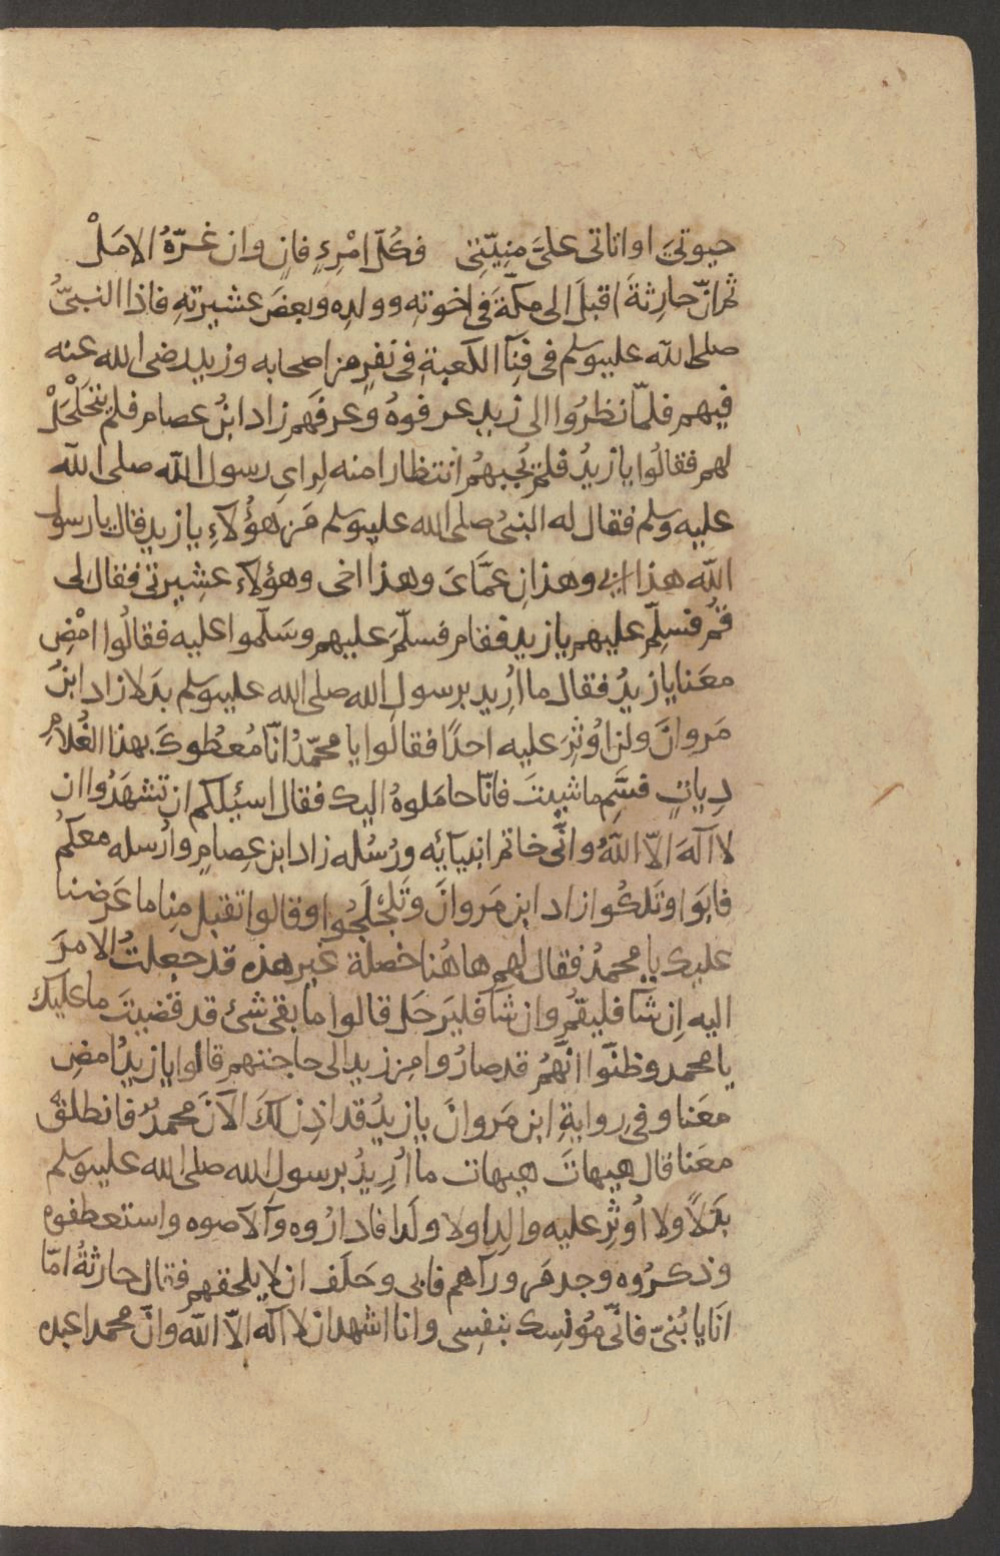 حيوتيَ اواتاتى علىَّ منِيّتِى فكُلّ امْرِءٍ فانٍ وان غَرّهُ الامَلْ
ثم انّ حارِثةَ اقبلَ الى مكّةَ فى اخوتهِ وولدِه وبعضَ عشيرتهِ فاذا النبىُّ
صلى الله عليه وسلم فى فنِآ الكعبةِ فى نفرٍ من اصحابه وزيد رضى الله عنه
فيهم فلمّا نظرُوا الى زيدٍ عرفوهُ وعرفَهم زاد ابنُ عصام فلم يتحَلْحَلْ
لهم فقالُوا يا زيدُ فلم يُجبهُم انتظارا منه لِراىِ رسول الله صلى الله
عليه وسلم فقال له النبىُ صلى الله عليه وسلم مَن هؤُلآءِ يا زيد فقال يا رسول
الله هذا ابى وهذانِ عمَّاىَ وهذا اخى وهؤلآء عشِيرتى فقال لى
قمُ فسلِّم عليهم يا زيد فقام فسلّمَ عليهم وسَلّموا عليه فقالُوا امْضِ
معَنا يا زيدُ فقال ما ارُِيد برسولِ الله صلى الله عليه وسلم بدَلا زاد ابنُ
مَروانَ ولن اوُثِرَ عليه احدًا فقالُوا يا محمّدُ انّا مُعطُوكَ بهذا الغُلامِ
دِياتٍ فسَمِّ ما شيِتَ فانّا حامَلوهُ اليك فقال اسئِلكم ان تشهَدُوا ان
لا الَهَ الاّ اللهُ وانِّى خاتم انبيآئِه ورُسُله زاد ابن عِصامٍ وارُسله معكمُ
فابَوا وتَلكُوا زاد ابن مَروانَ وتَلجَلَجُوا وقالوا تقبل مِنا ما عَرضنا
عليك يا محمدُ فقال لهم هاهُنا خصلة غير هذه قد جعلتُ الامرَ
اليه اِن شآ فليقُم وان شآ فليَرحَل قالوا ما بقى شئ قد قضيتَ ما عليك
يا محمد وظنّوا انّهمُ قد صارُوا من زيد الى حاجتهم قالوا يا زيدُ امضِ
معَنا وفى رِوايةِ ابن مَروانَ يا زيدُ قد اذِن لكَ الآنَ محمدٌ فانطلقْ
معَنا قال هيهاتَ هيهات ما ارُِيدُ برسولِ الله صلى الله عليه وسلم
بدَلاً ولا اُوثِر عليه والِدا ولا ولَدا فادارُوه وآلآصوه واستعطفوه
وذكرُوه وجد مَن ورآهم فابى وحَلَف ان لا يلحقهم فقال حارثةُ امّا
انَا يا بُنىّ فانّى مُونسِك بنفسِى وانا اشهد ان لا اله الاّ الله وانّ محمدا عبده